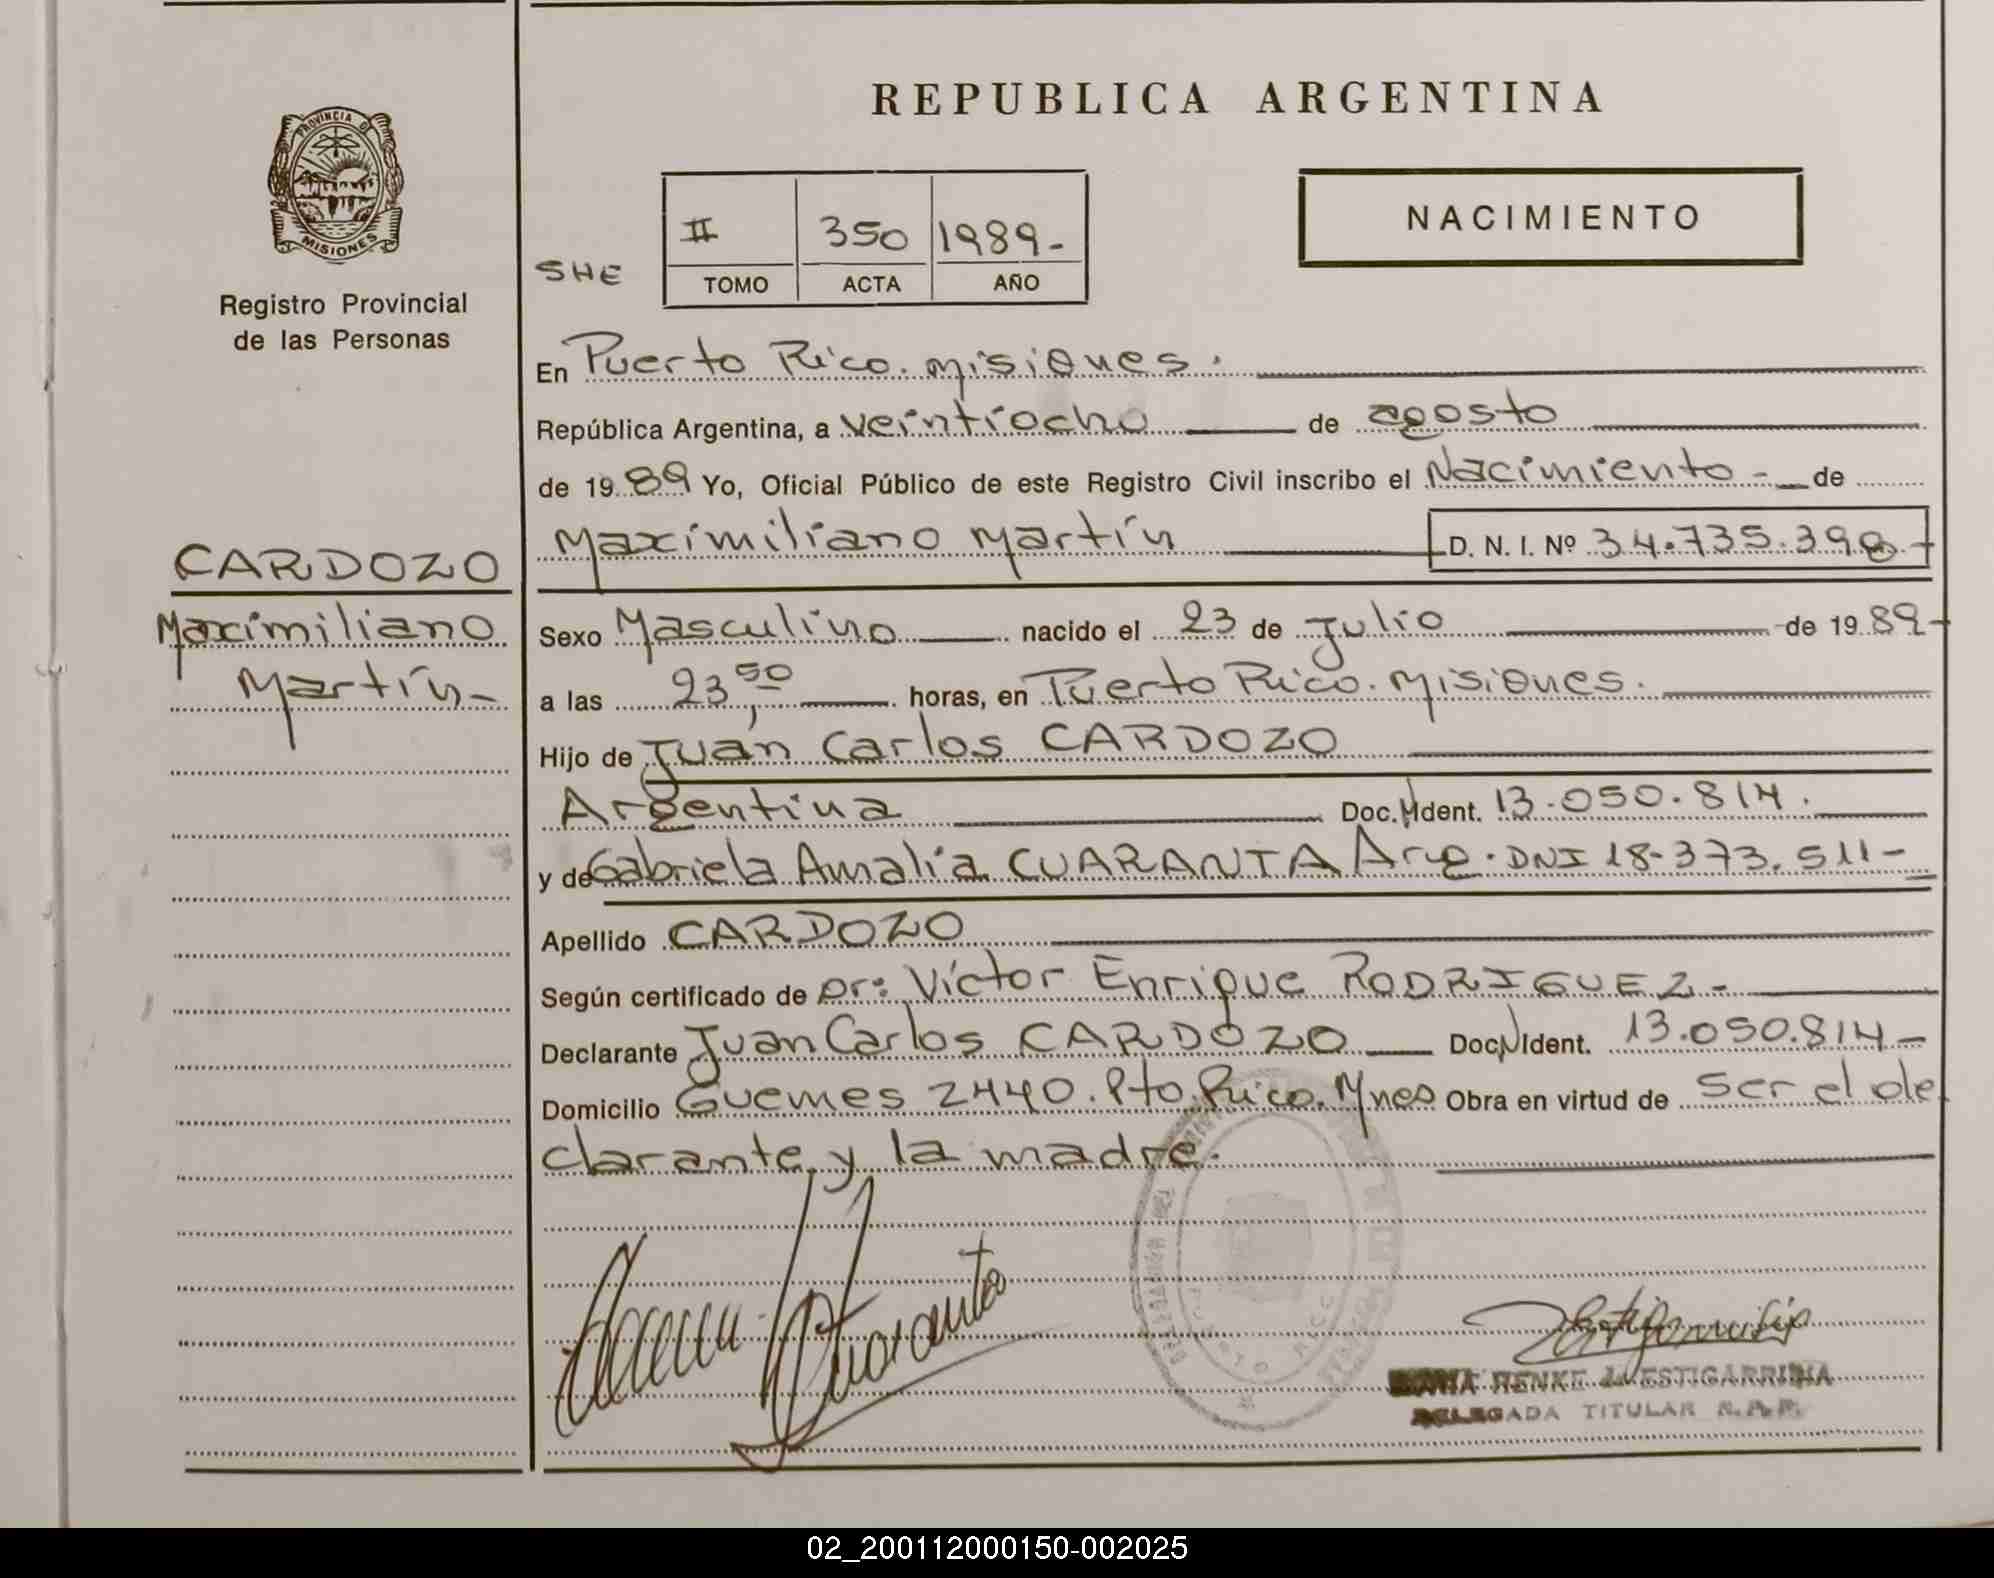 REPUBLICA ARGENTINA
PROVINCIA DE
MISIONES
Registro Provincial
de las Personas
SHE
II 350 1989-
TOMO ACTA AÑO
NACIMIENTO
En Puerto Rico. Misiones.
República Argentina, a veintiocho de agosto
de 1989 Yo, Oficial Público de este Registro Civil inscribo el Nacimiento - de
Maximiliano Martín D. N. I. Nº 34.735.398-
CARDOZO
Maximiliano
Martín-
Sexo Masculino nacido el 23 de Julio de 1989-
a las 23,50 horas, en Puerto Rico. Misiones.
Hijo de Juan Carlos CARDOZO
Argentina Doc. Ident. 13.050.814.
y de Gabriela Amalia CUARANTA Arg. DNI 18.373.511-
Apellido CARDOZO
Según certificado de Dr: Víctor Enrique RODRIGUEZ-
Declarante Juan Carlos CARDOZO Doc. Ident. 13.050.814-
Domicilio Guemes 2440. Pto. Rico. Mnes Obra en virtud de ser el de
clarante y la madre.
DELEGADA TITULAR R.P.P.
02_200112000150-002025